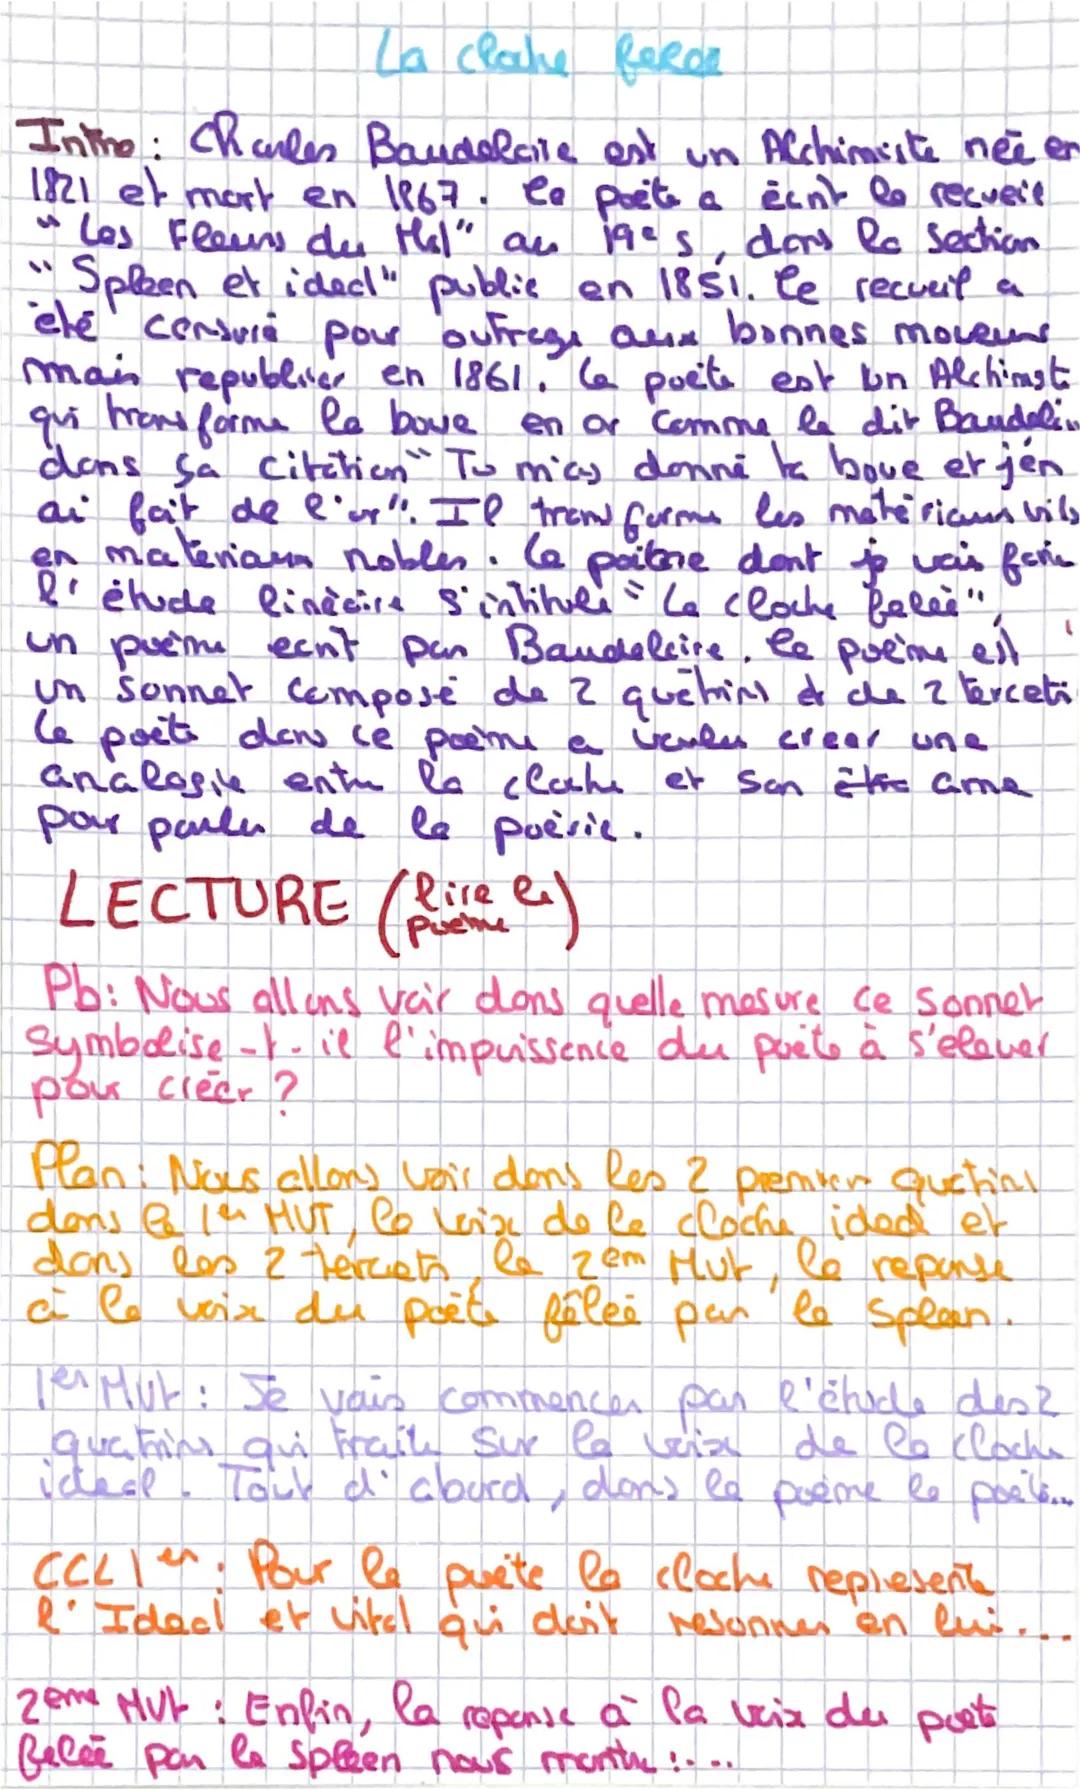 La cloche felée
Intro : Charles Baudelaire est un Alchimiste née en
1821 et mort en 1867. Le poète a écrit le recueil
"Les Fleurs du Mal" au 19e s, dans la section
"Spleen et idéal" publié en 1851. Le recueil a
été censuré pour outrage aux bonnes moveurs
mais republier en 1861. Le poète est un Alchimist
qui transforme la boue en or comme le dit Baudelir
dans sa citation "Tu m'as donné ta boue et j'en
ai fait de l'or". Il transforme les matériaux vils
en materiaux nobles. Le poème dont je vais faire
l'étude linéaire s'intitule "La cloche felée",
un poème ecrit par Baudelaire. Le poème est
un sonnet composé de 2 quatrins et de 2 tercets
Le poète dans ce poème a voulu creer une
analogie entre la cloche et son ame
pour parler de la poésie.
LECTURE (lire le poème)
Pb : Nous allons voir dans quelle mesure ce sonnet
symbolise-t-il l'impuissance du poète à s'elever
pour créer ?
Plan : Nous allons voir dans les 2 premier quatrins
dans le 1er MVT, la voix de la cloche ideal et
dans les 2 tercets, le 2em Mvt, la reponse
à la voix du poète fêlée par le Spleen.
1er Mvt : Je vais commencer par l'étude des 2
quatrins qui traite sur la voix de la cloche
ideal. Tout d'abord, dans le poème le poète...
CCL 1er : Pour le poète la cloche represente
l'Ideal et vital qui doit resonner en lui....
2eme Mvt : Enfin, la reponse à la voix du poète
felée par le spleen nous montre :....